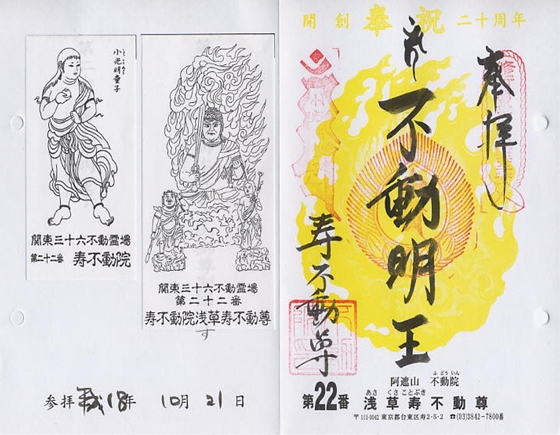 小光明童子
関東三十六不動霊場
第二十二番 寿不動院
関東三十六不動霊場
第二十二番
寿不動院浅草寿不動尊
す
参拝 平成18年 10月 21日
開創 奉祝 二十周年
奉拝
不動明王
寿不動尊
阿遮山 不動院
ふどういん
あさ くさ ことぶき
第22番 浅草寿不動尊
〒111-0042 東京都台東区寿2-5-2 ☎(03)3842-7800